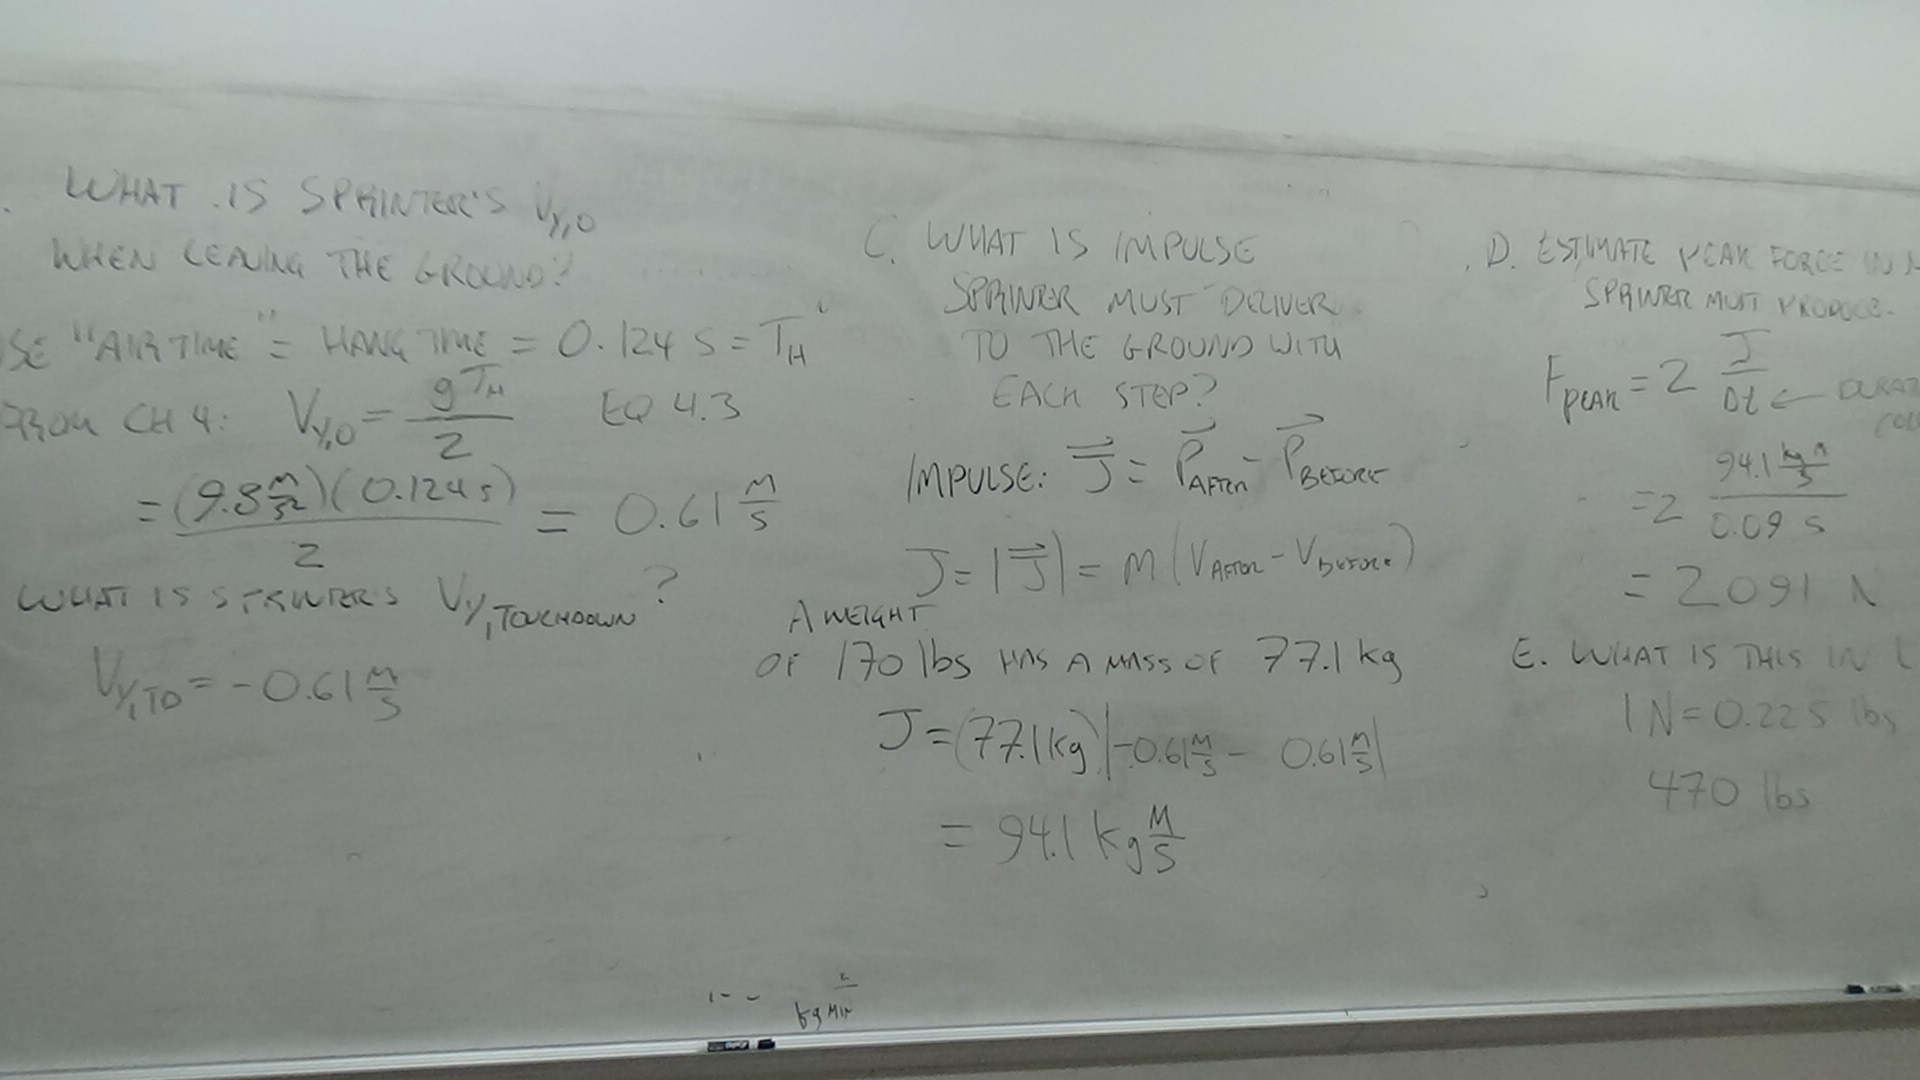 . WHAT IS SPRINTER'S V_{Y,0}
WHEN LEAVING THE GROUND?
SE "AIR TIME" = HANG TIME = 0.124 S = T_H
FROM CH 4: V_{Y,0} = \frac{g T_H}{2} EQ 4.3
= \frac{(9.8 \frac{M}{S^2})(0.124 s)}{2} = 0.61 \frac{M}{S}
WHAT IS SPRINTER'S V_{Y, TOUCHDOWN}?
V_{Y,TD} = -0.61 \frac{M}{S}
C. WHAT IS IMPULSE
SPRINTER MUST DELIVER
TO THE GROUND WITH
EACH STEP?
IMPULSE: \vec{J} = \vec{P}_{AFTER} - \vec{P}_{BEFORE}
J = |\vec{J}| = M (V_{AFTER} - V_{BEFORE})
A WEIGHT
OF 170 lbs HAS A MASS OF 77.1 kg
J = (77.1 kg) |-0.61 \frac{M}{S} - 0.61 \frac{M}{S}|
= 94.1 kg \frac{M}{S}
kg MIN
D. ESTIMATE PEAK FORCE IN
SPRINTER MUST PRODUCE.
F_{PEAK} = 2 \frac{J}{Dt} ← DURAT
COL
= 2 \frac{94.1 kg \frac{M}{S}}{0.09 S}
= 2091 N
E. WHAT IS THIS IN L
1 N = 0.225 lbs
470 lbs